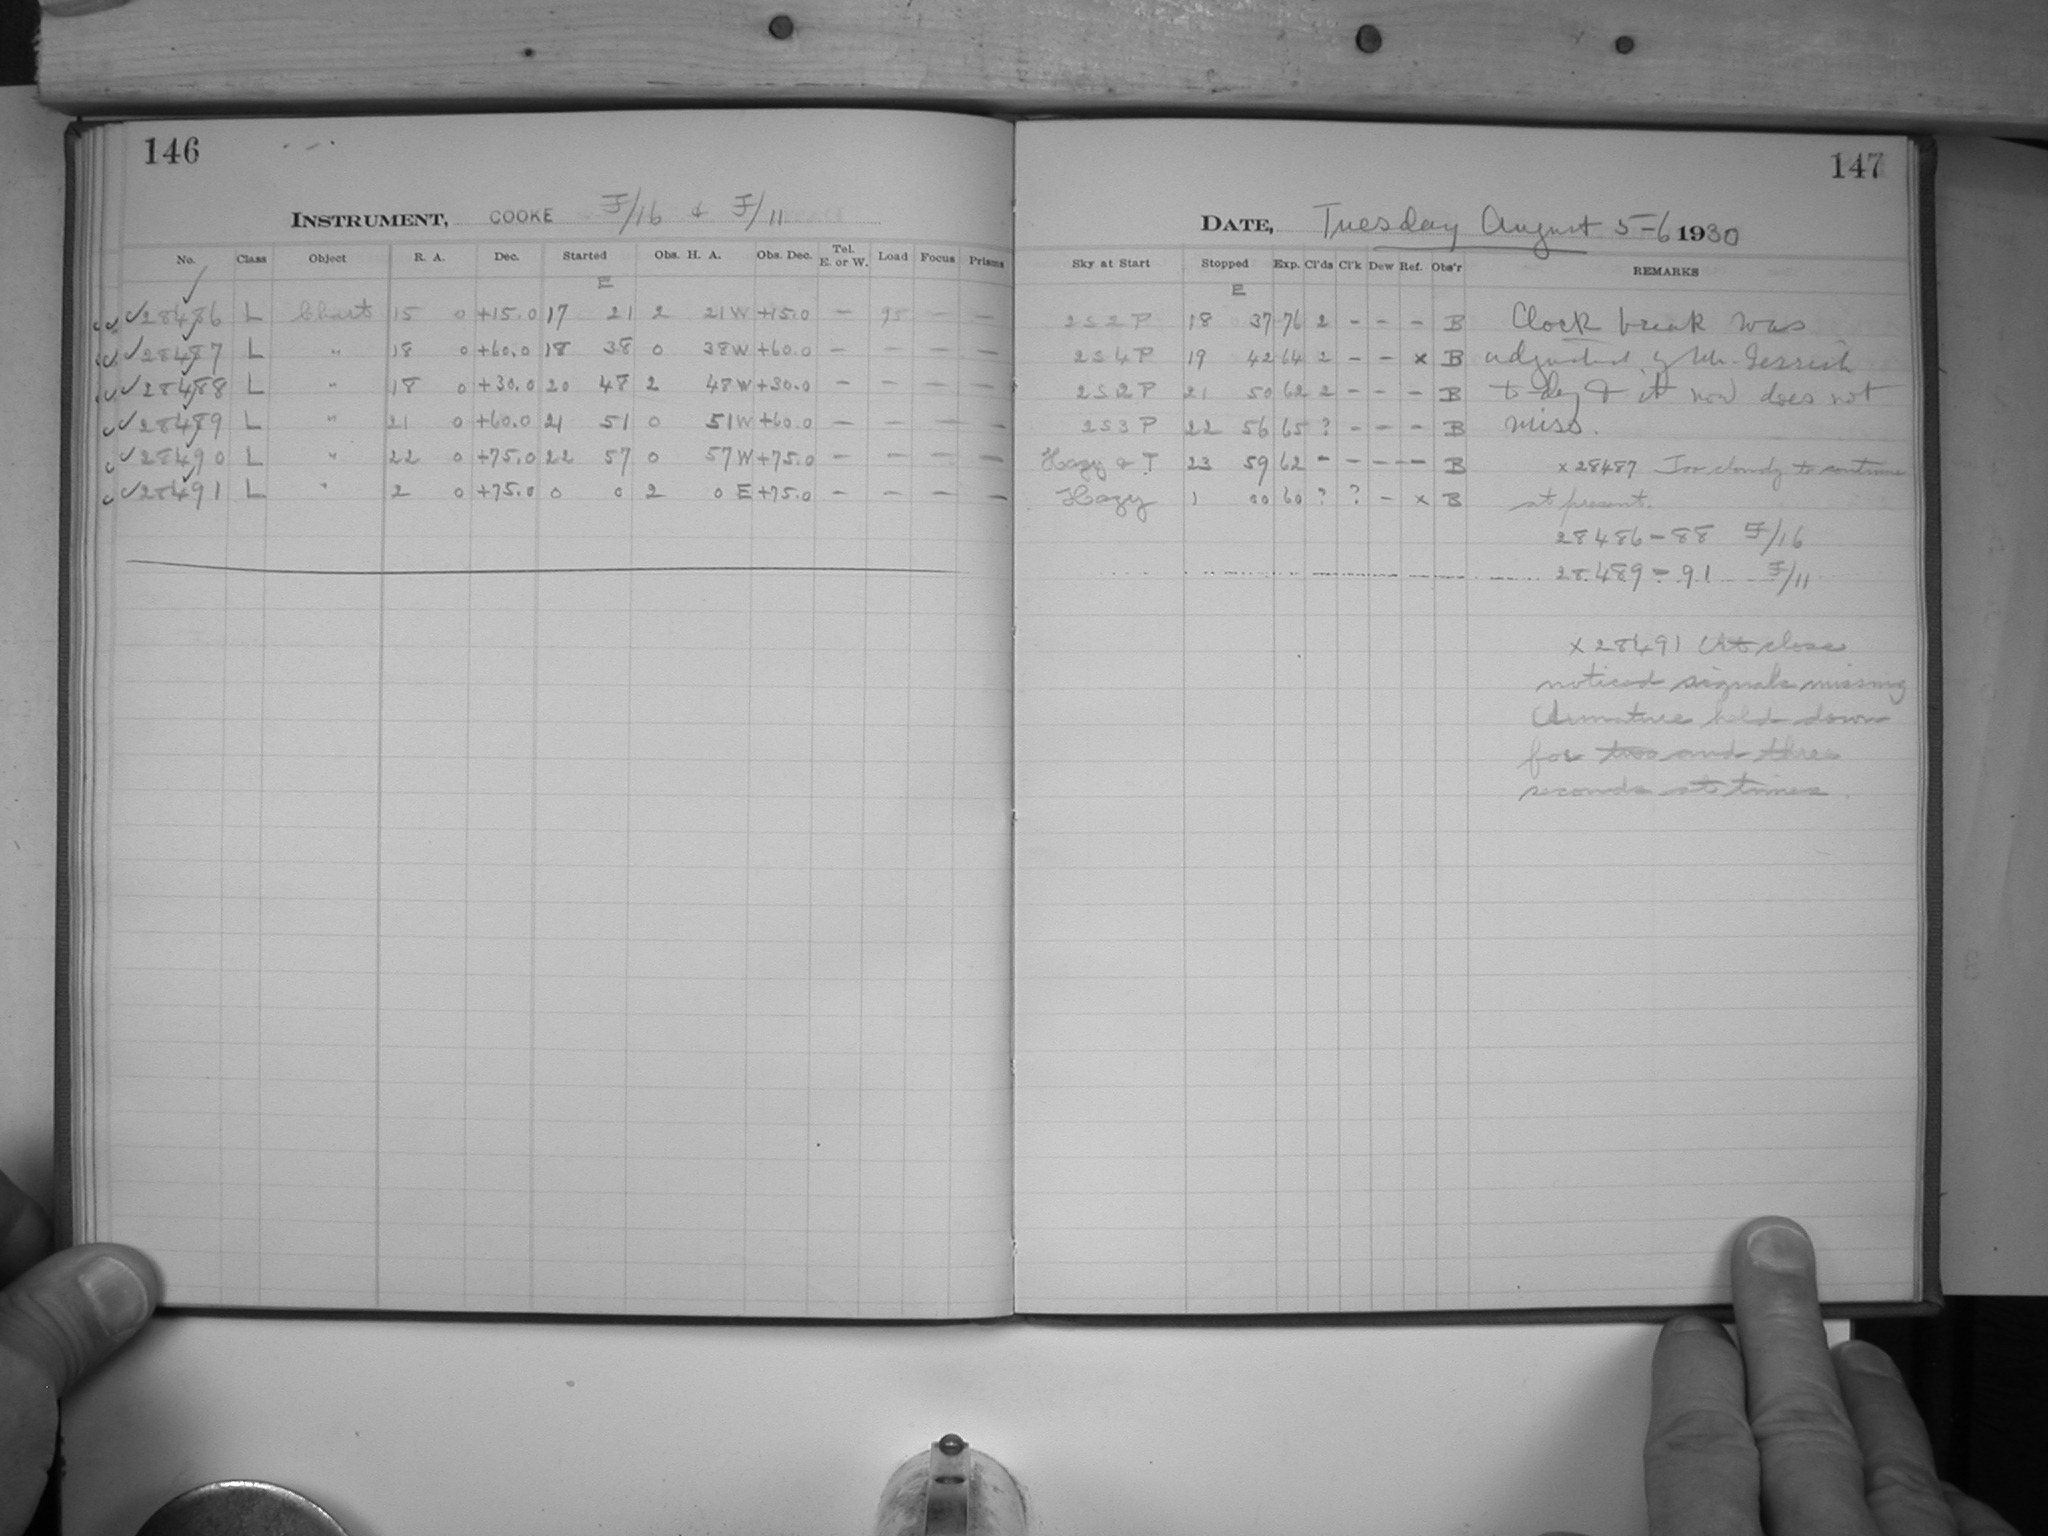 146
INSTRUMENT, COOKE F/16 & F/11
No. Class Object R. A. Dec. Started Obs. H. A. Obs. Dec. Tel. E. or W. Load Focus Prisms
E
28486 L Chart 15 0 +15.0 17 21 2 21W +15.0 — 95 — —
28487 L " 18 0 +60.0 18 38 0 38W +60.0 — — — —
28488 L " 18 0 +30.0 20 48 2 48W +30.0 — — — —
28489 L " 21 0 +60.0 21 51 0 51W +60.0 — — — —
28490 L " 22 0 +75.0 22 57 0 57W +75.0 — — — —
28491 L " 2 0 +75.0 0 0 2 0 E +75.0 — — — —
147
DATE, Tuesday August 5-6 1930
Sky at Start Stopped Exp. Cl'ds Cl'k Dew Ref. Obs'r REMARKS
E
2S2P 18 37 76 2 - - - B Clock break was
2S4P 19 42 64 2 - - x B adjusted by Mr. Gerrish
2S2P 21 50 62 2 - - - B to day & it now does not
2S3P 22 56 65 ? - - - B miss.
Hazy & T 23 59 62 - - - - B x 28487 Too cloudy to continue
Hazy 1 00 60 ? ? - x B at present.
28486-88 F/16
28489-91 F/11
x 28491 At close
noticed signals missing
Armature held down
for two and three
seconds at times.